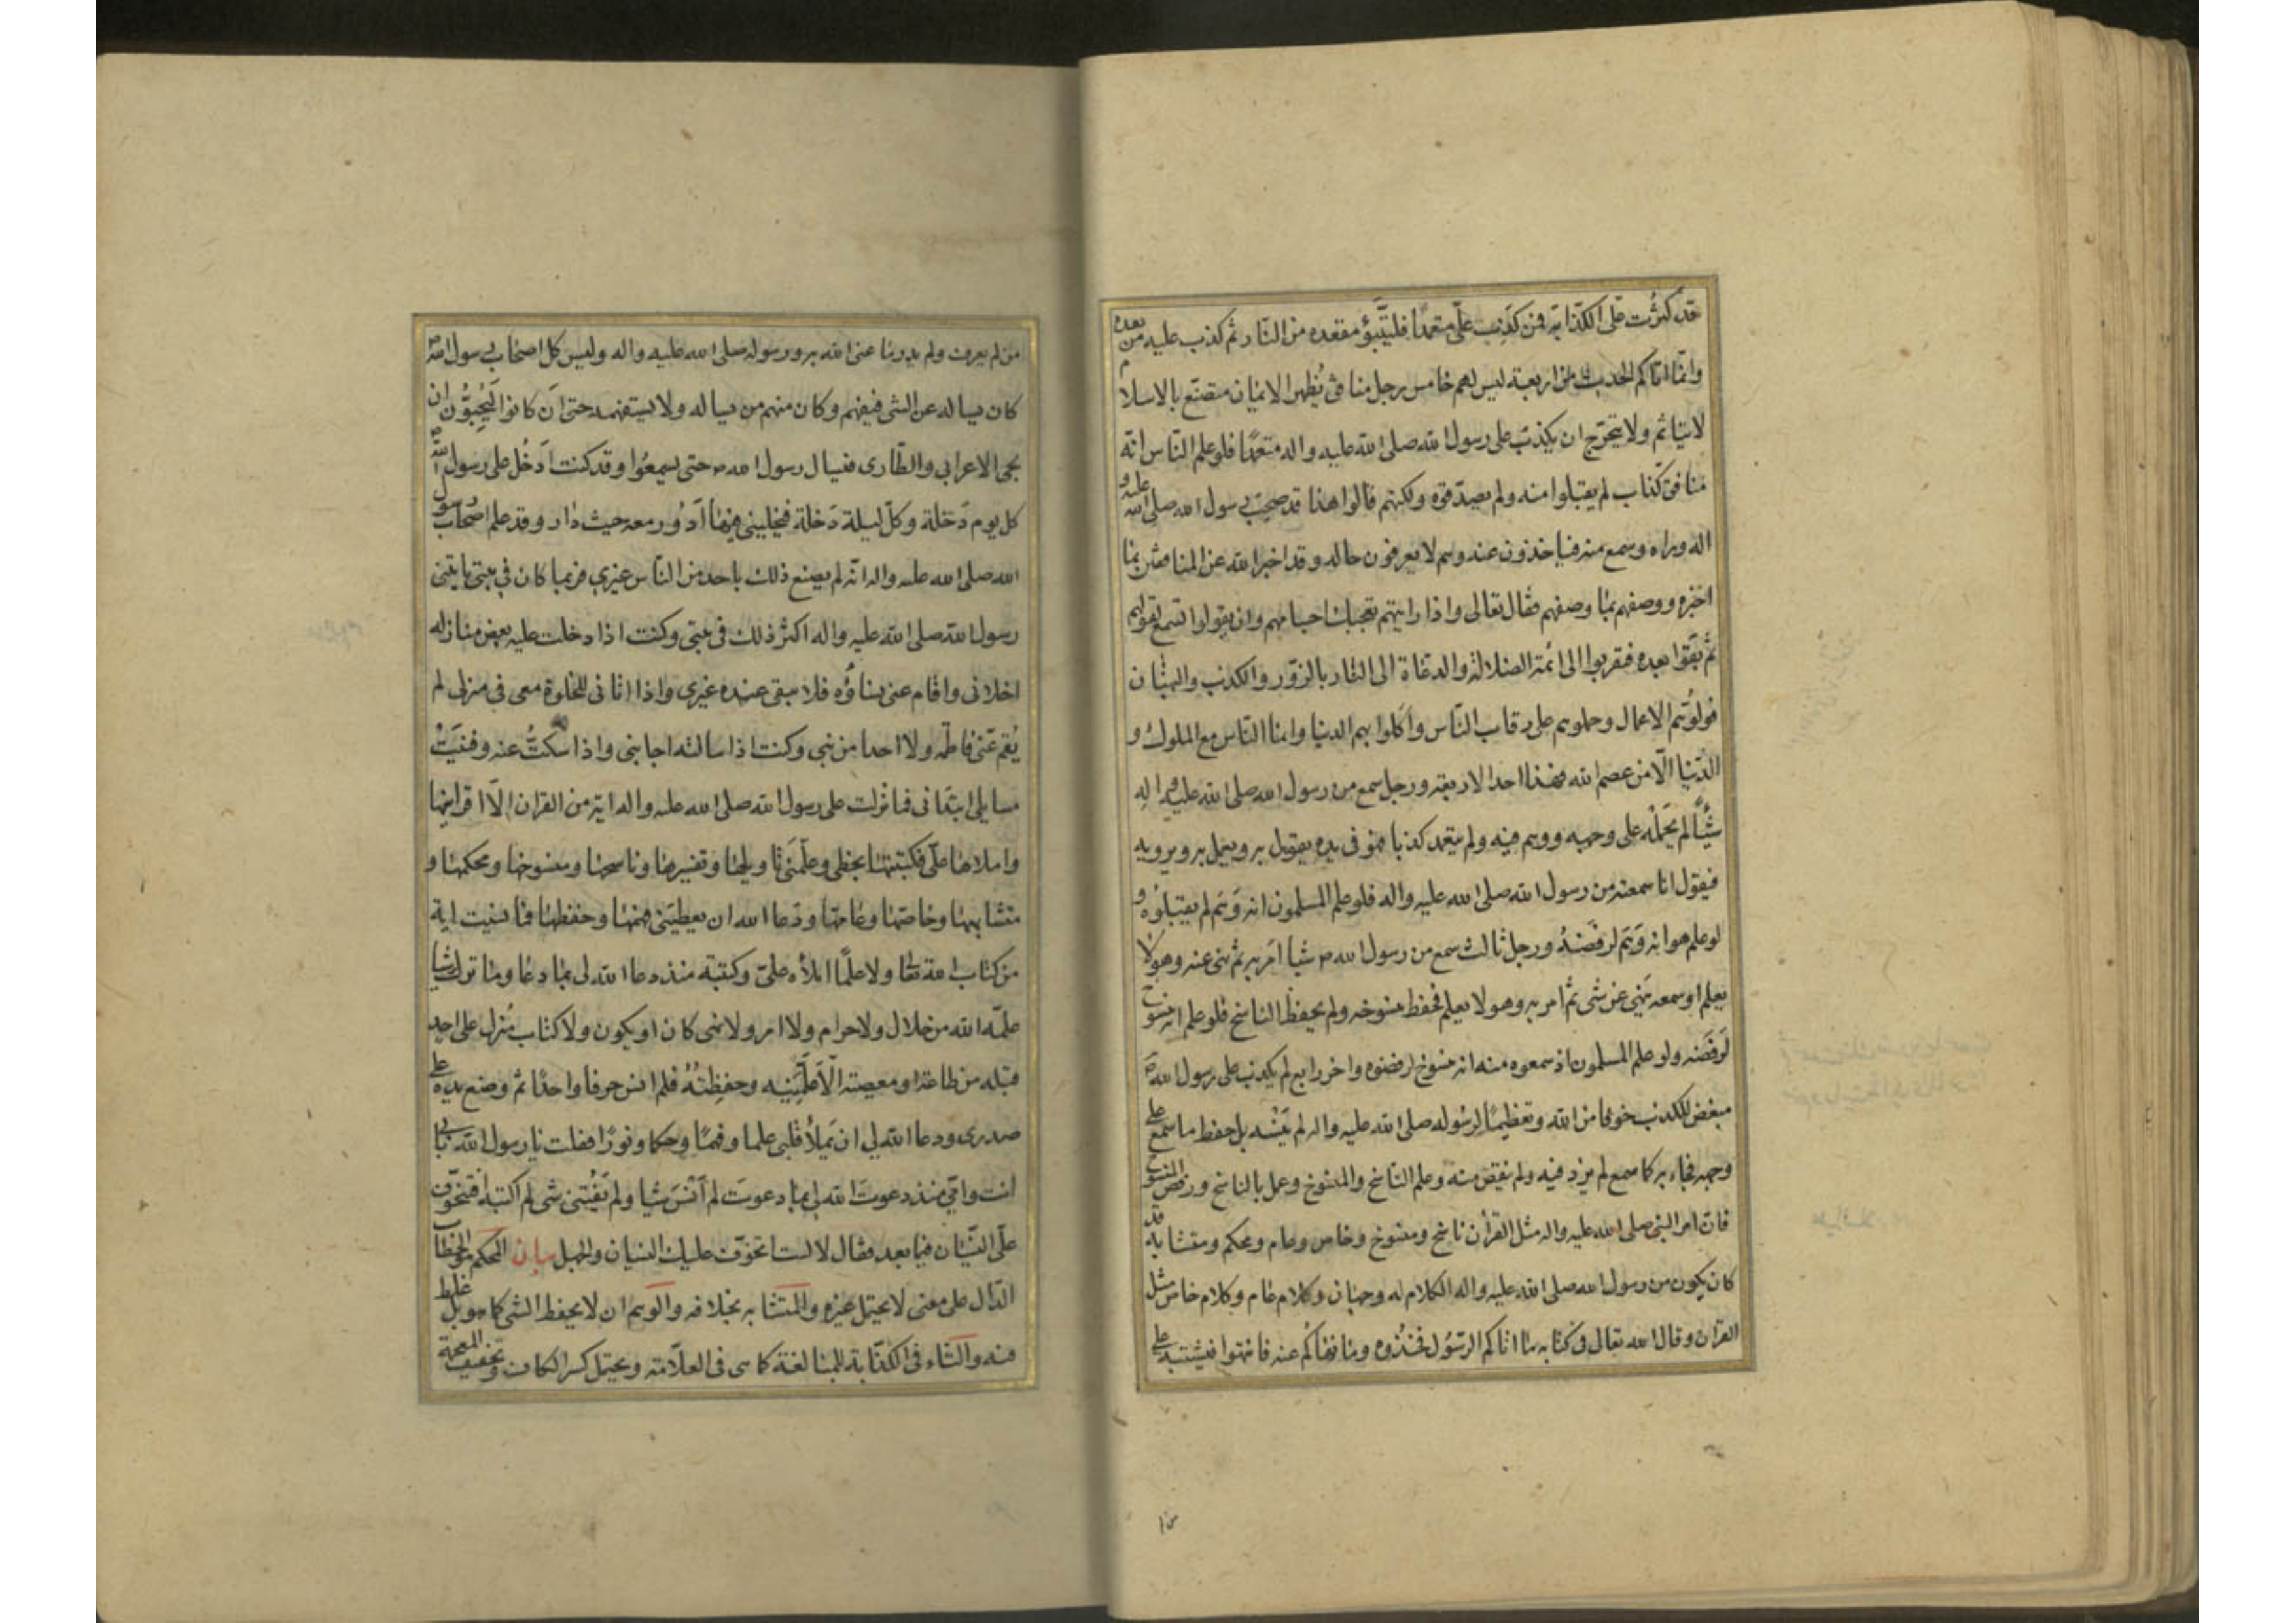 قد كثُرت علىّ الكذّابة فمن كذب علىّ متعمّدًا فليتبوّؤ مقعده من النّار ثم كذب عليه من بعده
وانّما اتاكم الحديث من اربعة ليس لهم خامس رجل منافق يُظهر الايمان متصنّع بالاسلام
لا يتاثم ولا يتحرّج ان يكذب على رسول الله صلى الله عليه واله متعمّدًا فلو علم النّاس انّه
منافق كذّاب لم يقبلوا منه ولم يصدّقوه ولكنهم قالوا هذا قد صحب رسول الله صلى الله عليه و
اله وراه وسمع منه فياخذون عنه وهم لا يعرفون حاله وقد اخبر الله عن المنافقين بما
اخبره ووصفهم بما وصفهم فقال تعالى واذا رايتهم تعجبك اجسامهم وان يقولوا تسمع لقولهم
ثم بَقَوا بعده فتقربوا الى ائمة الضلالة والدعاة الى النار بالزّور والكذب والبهتان
فولوُهم الاعمال وحملوهم على رقاب النّاس واكلوا بهم الدنيا وانما النّاس مع الملوك و
الدّنيا الّا من عصم الله فهذا احد الاربعة ورجل سمع من رسول الله صلى الله عليه واله
شيئًا لم يَحمله على وجهه ووهم فيه ولم يتعمد كذبا فهو فى يده يقول به ويعمل به ويرويه
فيقول انا سمعته من رسول الله صلى الله عليه واله فلو علم المسلمون انه وَهَم لم يقبلوُه و
لو علم هو انه وَهَم لرفضَهُ ورجل ثالث سمع من رسول الله ص شيا امَر به ثم نهى عنه وهو لا
يعلم او سمعه ينهى عن شى ثم امر به وهو لا يعلم فحفظ منسوخه ولم يحفظ الناسخ فلو علم انه منسوخ
لَرفَضَه ولو علم المسلمون اذ سمعوه منه انه منسوخ لرفضوه واخر رابع لم يكذب على رسول الله ص
مبغض للكذب خوفا من الله وتعظيمًا لرسوله صلى الله عليه واله لم يَنسه بل حفظ ما سمع على
وجهه فجاء به كما سمع لم يزد فيه ولم ينقص منه وعلم النّاسخ والمنسوخ وعمل بالناسخ ورفض المنسوخ
فانّ امر النبى صلى الله عليه واله مثل القرأن ناسخ ومنسوخ وخاص وعام ومحكم ومتشابه قد
كان يكون من رسول الله صلى الله عليه واله الكلام له وجهان وكلام عام وكلام خاص مثل
القران وقال الله تعالى فى كتابه ما اتاكم الرّسُول فخذُوه وما نهاكُم عنه فانتهوا فيشتبه على
من لم يعرف ولم يدر ما عنى الله به ورسوله صلى الله عليه واله وليس كل اصحاب رسول الله ص
كان يساله عن الشى فيفهم وكان منهم من يساله ولا يستفهمه حتى ان كانوا ليُحِبّوُن ان
يجى الاعرابي والطّارى فيسال رسول الله ص حتى يسمعُوا وقد كنت ادخُل على رسول الله ص
كل يوم دَخلة وكلّ ليلة دَخلة فيخليني فيها اَدُور معه حيث دار وقد علم اصحاب رسول
الله صلى الله عليه واله انّه لم يصنع ذلك باحد من النّاس غيري فربما كان في بيتي ياتيني
رسول الله صلى الله عليه واله اكثر ذلك فى بيتى وكنت اذا دخلت عليه بعض منازله
اخلانى واقام عنى نساؤُه فلا يبقى عنده غيرى واذا اتانى للخلوة معى فى منزلى لم
يُقم عَنى فاطمة ولا احدا من بني وكنت اذا سالته اجابنى واذا سكتُّ عنه وفَنِيَتْ
مسايلى ابتدانى فما نزلت على رسول الله صلى الله عليه واله اية من القران الّا اقرانيها
واملاها علىّ فكتبتها بخطى وعلّمنى تاويلها وتفسيرها وناسخها ومنسوخها ومحكمها و
متشابهها وخاصّها وعامّها ودَعا الله ان يعطيَنى فهمها وحفظها فما نسيت اية
من كتاب الله تعا ولا علمًا املأه علىّ وكتبته منذ دعا الله لى بما دعا وما ترك شيا
علّمه الله من حلال ولا حرام ولا امر ولا نهى كان او يكون ولا كتاب مُنزل على احد
قبله من طاعة او معصية الّا علّمنيه وحفِظتُهُ فلم انس حرفا واحدًا ثم وضع يده على
صدرى ودعا الله لي ان يَملأ قلبى علما وفهمًا وحكما ونورًا فقلت يا رسول الله بابى
انت وامّي منذ دعوتَ الله لى بما دعوتَ لم اَنْسَ شيا ولم يَفُتنى شى لم اكتبه افتخوّف
علىّ النّسيان فيما بعد فقال لا لست اتخوّف عليك النسيان والجهل بيان المحكم هو الخطاب
الدّال على معنى لا يحتمل غيره والمتشابه بخلافه والوهم ان لا يحفظ الشى كما هو بل غلط
فيه والتّاء فى الكذّابة للمبالغة كما هى فى العلّامة ويحتمل كسر الكاف وتخفيف المعجمة